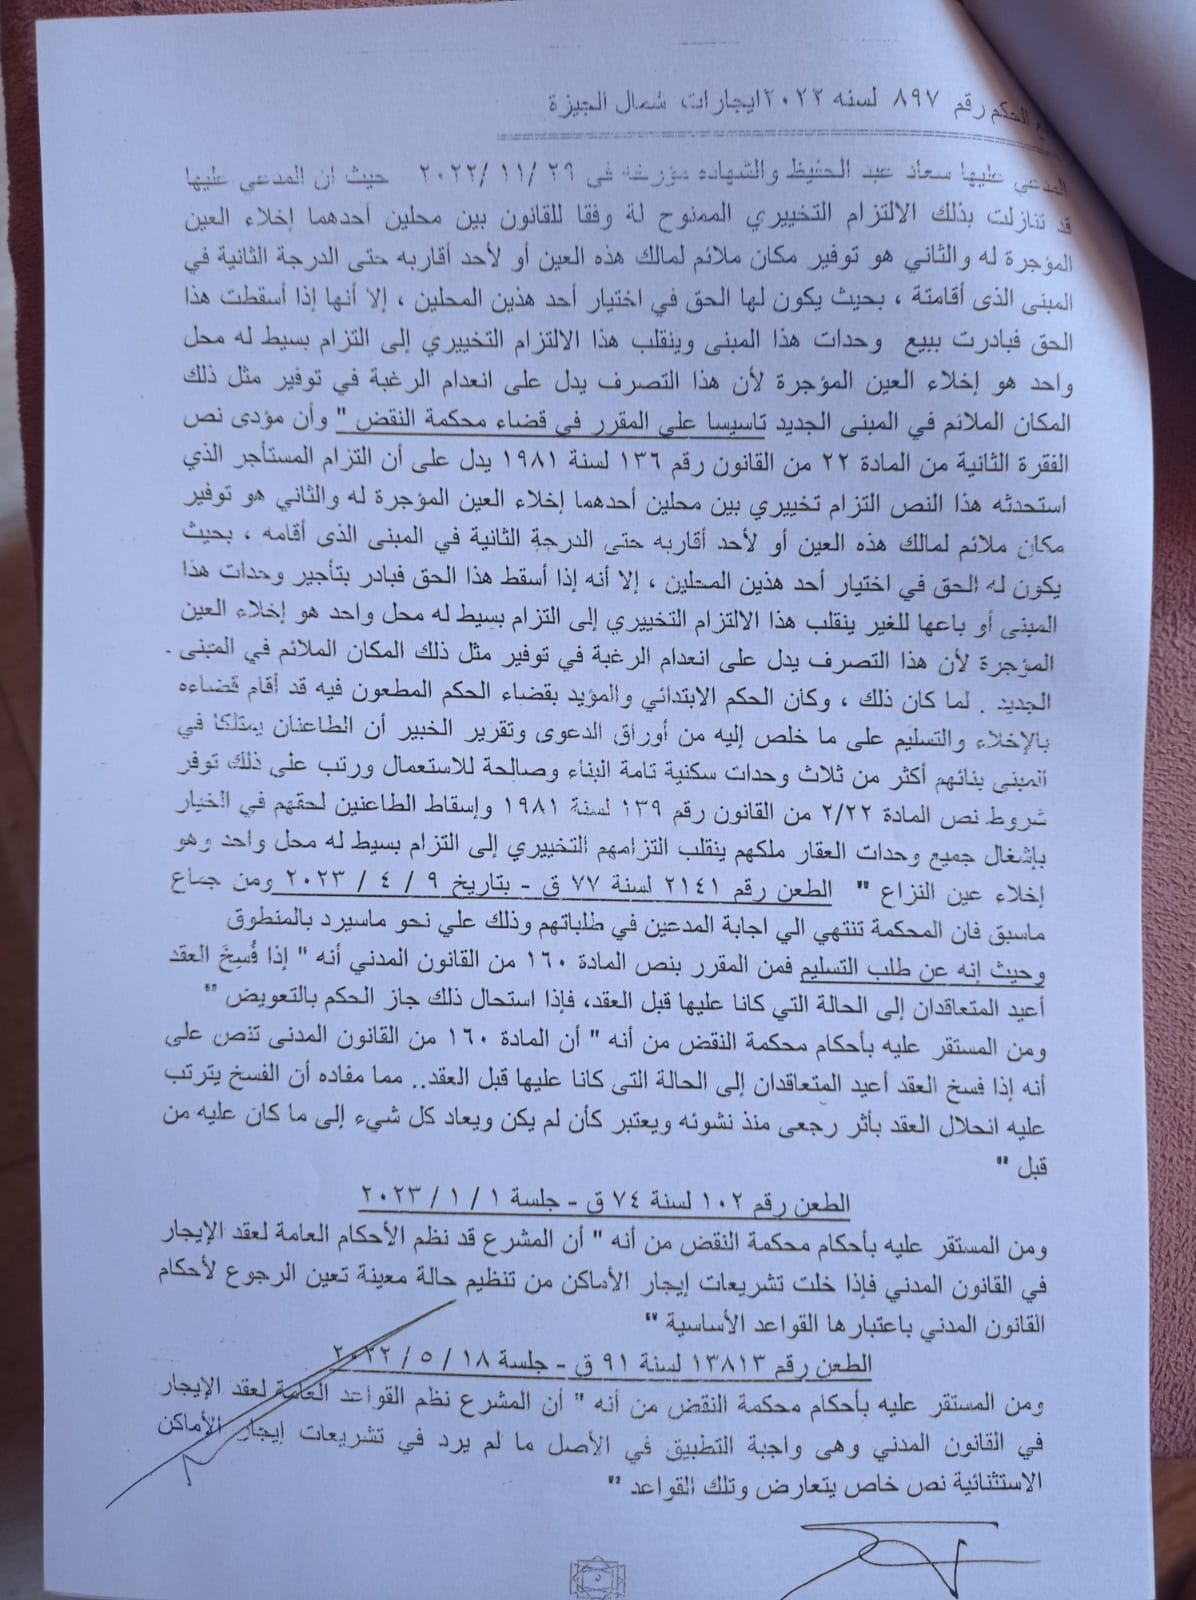 الحكم رقم ٨٩٧ لسنه ٢٠٢٢ ايجارات شمال الجيزة
المدعي عليها سعاد عبد الحفيظ والشهاده مؤرخة فى ٢٩ /١١ /٢٠٢٢ حيث ان المدعى عليها
قد تنازلت بذلك الالتزام التخييري الممنوح لة وفقا للقانون بين محلين احدهما إخلاء العين
المؤجرة له والثاني هو توفير مكان ملائم لمالك هذه العين أو لأحد أقاربه حتى الدرجة الثانية في
المبنى الذى أقامتة ، بحيث يكون لها الحق في اختيار أحد هذين المحلين ، إلا أنها إذا أسقطت هذا
الحق فبادرت ببيع وحدات هذا المبنى وينقلب هذا الالتزام التخييري إلى التزام بسيط له محل
واحد هو إخلاء العين المؤجرة لأن هذا التصرف يدل على انعدام الرغبة في توفير مثل ذلك
المكان الملائم في المبنى الجديد تاسيسا على المقرر في قضاء محكمة النقض " وأن مؤدى نص
الفقرة الثانية من المادة ٢٢ من القانون رقم ١٣٦ لسنة ١٩٨١ يدل على أن التزام المستأجر الذي
استحدثه هذا النص التزام تخييري بين محلين أحدهما إخلاء العين المؤجرة له والثاني هو توفير
مكان ملائم لمالك هذه العين أو لأحد أقاربه حتى الدرجة الثانية في المبنى الذى أقامه ، بحيث
يكون له الحق في اختيار أحد هذين المحلين ، إلا أنه إذا أسقط هذا الحق فبادر بتأجير وحدات هذا
المبنى أو باعها للغير ينقلب هذا الالتزام التخييري إلى التزام بسيط له محل واحد هو إخلاء العين
المؤجرة لأن هذا التصرف يدل على انعدام الرغبة في توفير مثل ذلك المكان الملائم في المبنى
الجديد . لما كان ذلك ، وكان الحكم الابتدائي والمؤيد بقضاء الحكم المطعون فيه قد أقام قضاءه
بالإخلاء والتسليم على ما خلص إليه من أوراق الدعوى وتقرير الخبير أن الطاعنان يمتلكا في
المبنى بنائهم أكثر من ثلاث وحدات سكنية تامة البناء وصالحة للاستعمال ورتب على ذلك توفر
شروط نص المادة ٢/٢٢ من القانون رقم ١٣٩ لسنة ١٩٨١ وإسقاط الطاعنين لحقهم في الخيار
بإشغال جميع وحدات العقار ملكهم ينقلب التزامهم التخييري إلى التزام بسيط له محل واحد وهو
إخلاء عين النزاع " الطعن رقم ٢١٤١ لسنة ٧٧ ق - بتاريخ ٩ / ٤ / ٢٠٢٣ ومن جماع
ماسبق فان المحكمة تنتهي الي اجابة المدعين في طلباتهم وذلك علي نحو ماسيرد بالمنطوق
وحيث إنه عن طلب التسليم فمن المقرر بنص المادة ١٦٠ من القانون المدني أنه " إذا فُسِخَ العقد
أعيد المتعاقدان إلى الحالة التي كانا عليها قبل العقد، فإذا استحال ذلك جاز الحكم بالتعويض "
ومن المستقر عليه بأحكام محكمة النقض من أنه " أن المادة ١٦٠ من القانون المدنى تنص على
أنه إذا فسخ العقد أعيد المتعاقدان إلى الحالة التى كانا عليها قبل العقد.. مما مفاده أن الفسخ يترتب
عليه انحلال العقد بأثر رجعى منذ نشوئه ويعتبر كأن لم يكن ويعاد كل شيء إلى ما كان عليه من
قبل "
الطعن رقم ١٠٢ لسنة ٧٤ ق - جلسة ١ / ١ / ٢٠٢٣
ومن المستقر عليه بأحكام محكمة النقض من أنه " أن المشرع قد نظم الأحكام العامة لعقد الإيجار
في القانون المدني فإذا خلت تشريعات إيجار الأماكن من تنظيم حالة معينة تعين الرجوع لأحكام
القانون المدني باعتبارها القواعد الأساسية "
الطعن رقم ١٣٨١٣ لسنة ٩١ ق - جلسة ١٨ / ٥ / ٢٠٢٢
ومن المستقر عليه بأحكام محكمة النقض من أنه " أن المشرع نظم القواعد العامة لعقد الإيجار
في القانون المدني وهى واجبة التطبيق في الأصل ما لم يرد في تشريعات إيجار الأماكن
الاستثنائية نص خاص يتعارض وتلك القواعد "